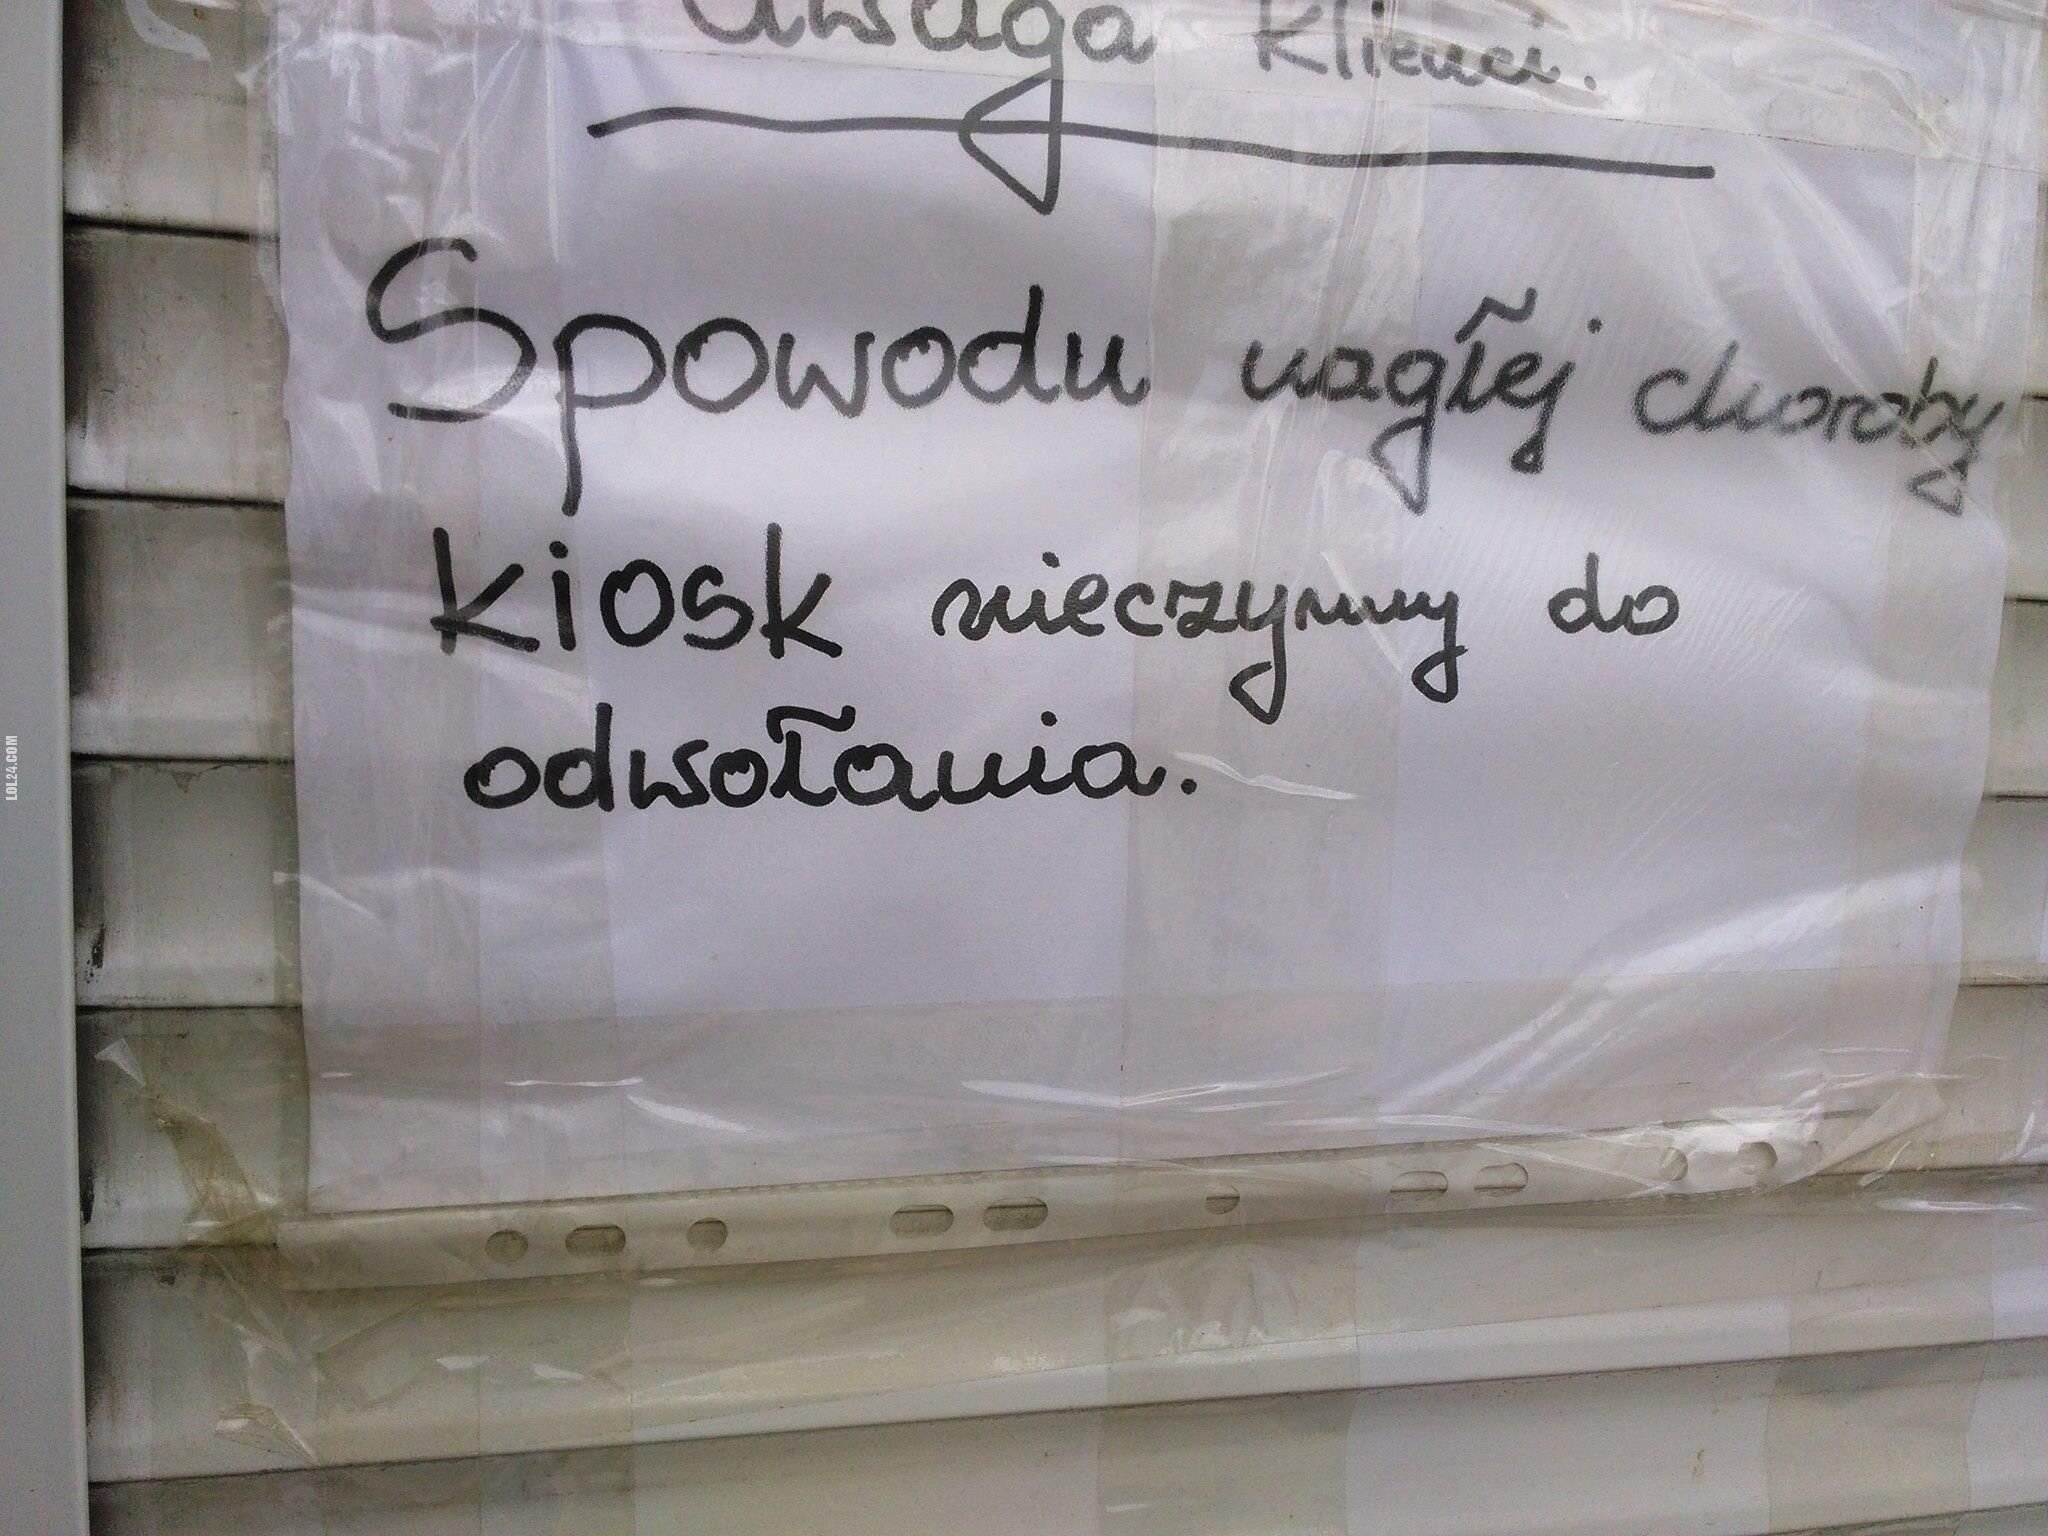 Uwaga klienci.
Spowodu nagłej choroby
kiosk nieczynny do
odwołania.
LOL24.COM